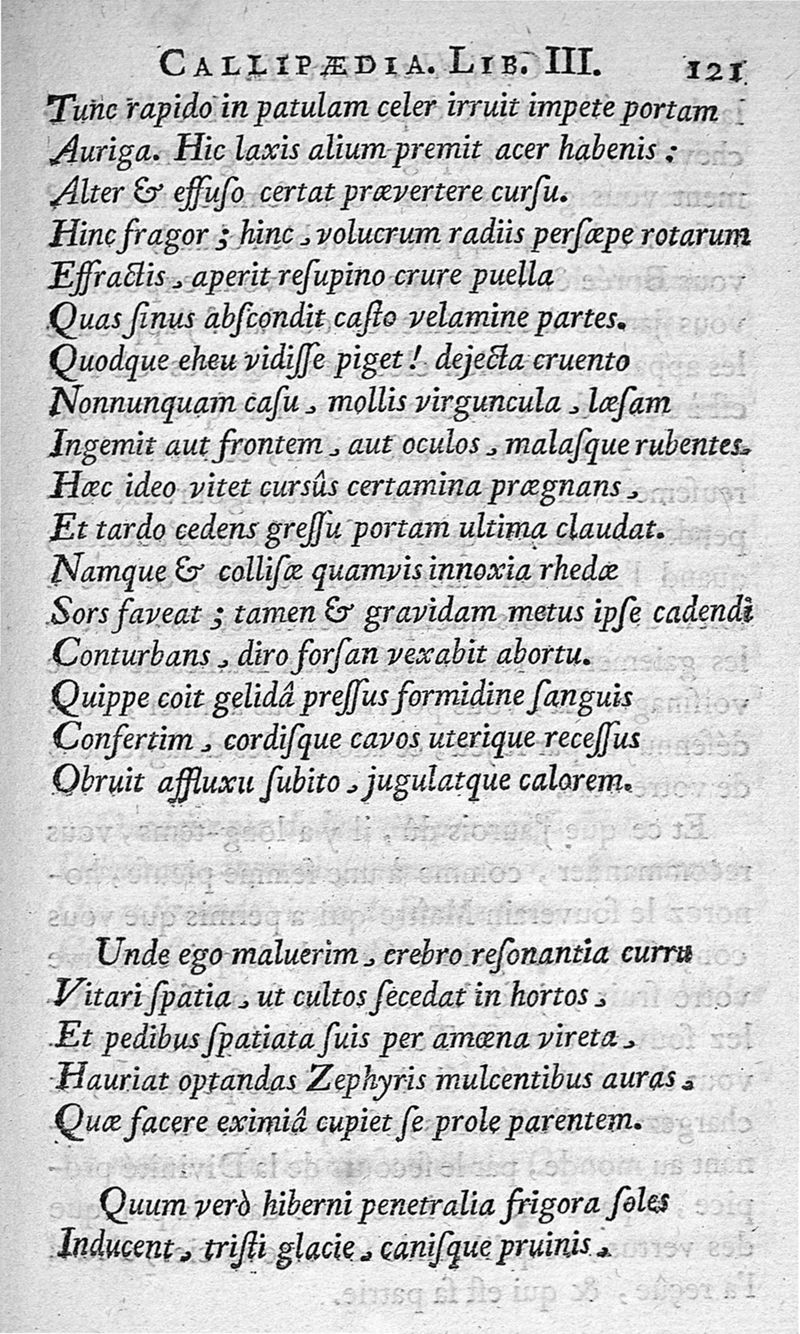 CALLIPÆDIA. LIB. III. 121
Tunc rapido in patulam celer irruit impete portam
Auriga. Hic laxis alium premit acer habenis :
Alter & effuſo certat prævertere curſu.
Hinc fragor ; hinc, volucrum radiis perſæpe rotarum
Effractis, aperit reſupino crure puella
Quas ſinus abſcondit caſto velamine partes.
Quodque eheu vidiſſe piget ! dejecta cruento
Nonnunquam caſu, mollis virguncula, læſam
Ingemit aut frontem, aut oculos, malaſque rubentes.
Hæc ideo vitet cursûs certamina prægnans,
Et tardo cedens greſſu portam ultima claudat.
Namque & colliſæ quamvis innoxia rhedæ
Sors faveat ; tamen & gravidam metus ipſe cadendi
Conturbans, diro forſan vexabit abortu.
Quippe coit gelidâ preſſus formidine ſanguis
Confertim, cordiſque cavos uterique receſſus
Obruit affluxu ſubito, jugulatque calorem.
Unde ego maluerim, crebro reſonantia curru
Vitari ſpatia, ut cultos ſecedat in hortos,
Et pedibus ſpatiata ſuis per amœna vireta,
Hauriat optandas Zephyris mulcentibus auras,
Quæ facere eximiâ cupiet ſe prole parentem.
Quum verò hiberni penetralia frigora ſoles
Inducent, triſti glacie, caniſque pruinis,